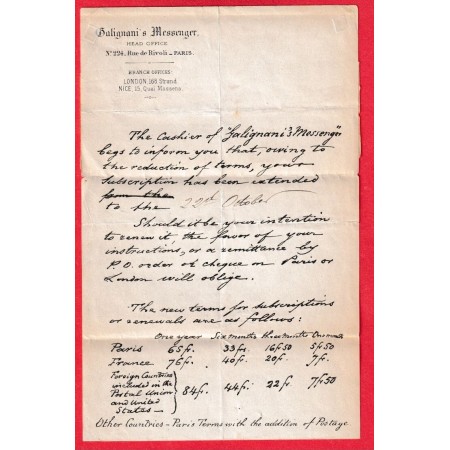 Galignani's Messenger.
HEAD OFFICE
Nº 224, Rue de Rivoli _ PARIS.
BRANCH OFFICES:
LONDON, 168 Strand.
NICE, 15, Quai Massena.
The Cashier of "Galignani's Messenger"
begs to inform you that, owing to
the reduction of terms, your
subscription has been extended
from the
to the 22d October
Should it be your intention
to renew it, the favor of your
instructions, or a remittance by
P.O. order or cheque on Paris or
London will oblige.
The new terms for subscriptions
or renewals are as follows:
One year Six months three months One month
Paris 65 fr. 33 fr. 16 f 50 5 f 50
France 76 fr. 40 fr. 20 fr. 7 fr.
Foreign Countries
included in the
Postal Union 84 fr. 44 fr. 22 fr 7 f 50
and United
States —
Other Countries — Paris Terms with the addition of Postage